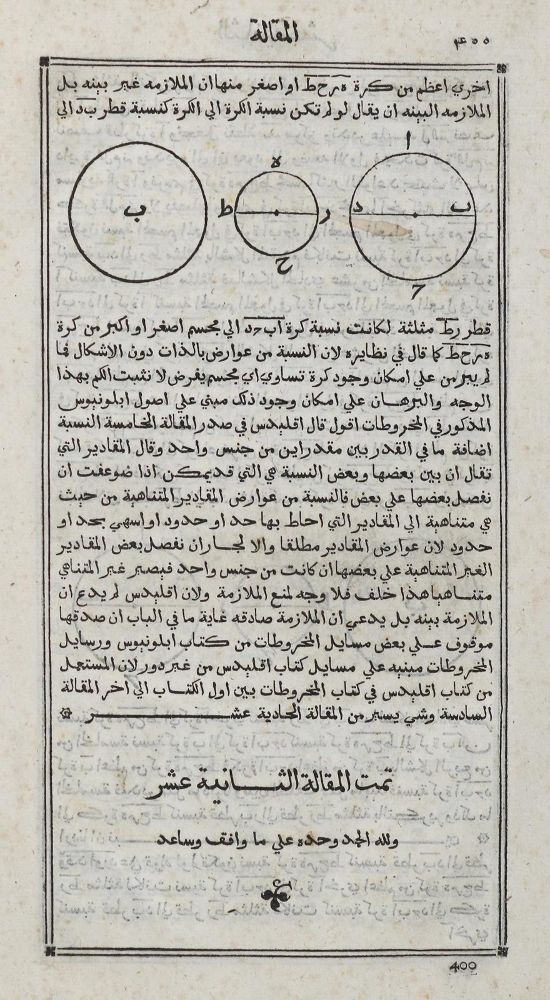 المقالة
٤٠٠
اخري اعظم من كرة ه ر ح ط او اصغر منها ان الملازمه غير بينه بل
الملازمه البينه ان يقال لو لم تكن نسبة الكرة الي الكرة كنسبة قطر ب د الي
ا
ه
ب
ط
ر
د
ب
ح
ج
قطر ر ط مثلثة لكانت نسبة كرة ا ب ج د الي مجسم اصغر او اكبر من كرة
ه ر ح ط كما قال في نظايره لان النسبة من عوارض بالذات دون الاشكال فما
لم يبرهن علي امكان وجود كرة تساوي اي مجسم يفرض لا نثبت الكم بهذا
الوجه والبرهان علي امكان وجود ذلك مبني علي اصول ابلونيوس
المذكور في المخروطات اقول قال اقليدس في صدر المقالة الخامسة النسبة
اضافة ما في القدر بين مقدراين من جنس واحد وقال المقادير التي
تقال ان بين بعضها وبعض النسبة هي التي قد يمكن اذا ضوعفت ان
نفصل بعضها علي بعض فالنسبة من عوارض المقادير المتناهية من حيث
هي متناهية الي المقادير التي احاط بها حد او حدود او اسهي بحد او
حدود لان عوارض المقادير مطلقا والا لجاز ان نفصل بعض المقادير
الغير المتناهية علي بعضها ان كانت من جنس واحد فيصير غير المتناهي
متناهيا هذا خلف فلا وجه لمنع الملازمة ولان اقليدس لم يدع ان
الملازمة بينه بل يدعي ان الملازمة صادقه غاية ما في الباب ان صدقها
موقوف علي بعض مسايل المخروطات من كتاب ابلونيوس ورسايل
المخروطات مبنيه علي مسايل كتاب اقليدس من غير دور لان المستعمل
من كتاب اقليدس في كتاب المخروطات بين اول الكتاب الي اخر المقالة
السادسة وشي يسير من المقالة الحادية عشر
تمت المقالة الثانية عشر
ولله الحمد وحده علي ما وافق وساعد
400